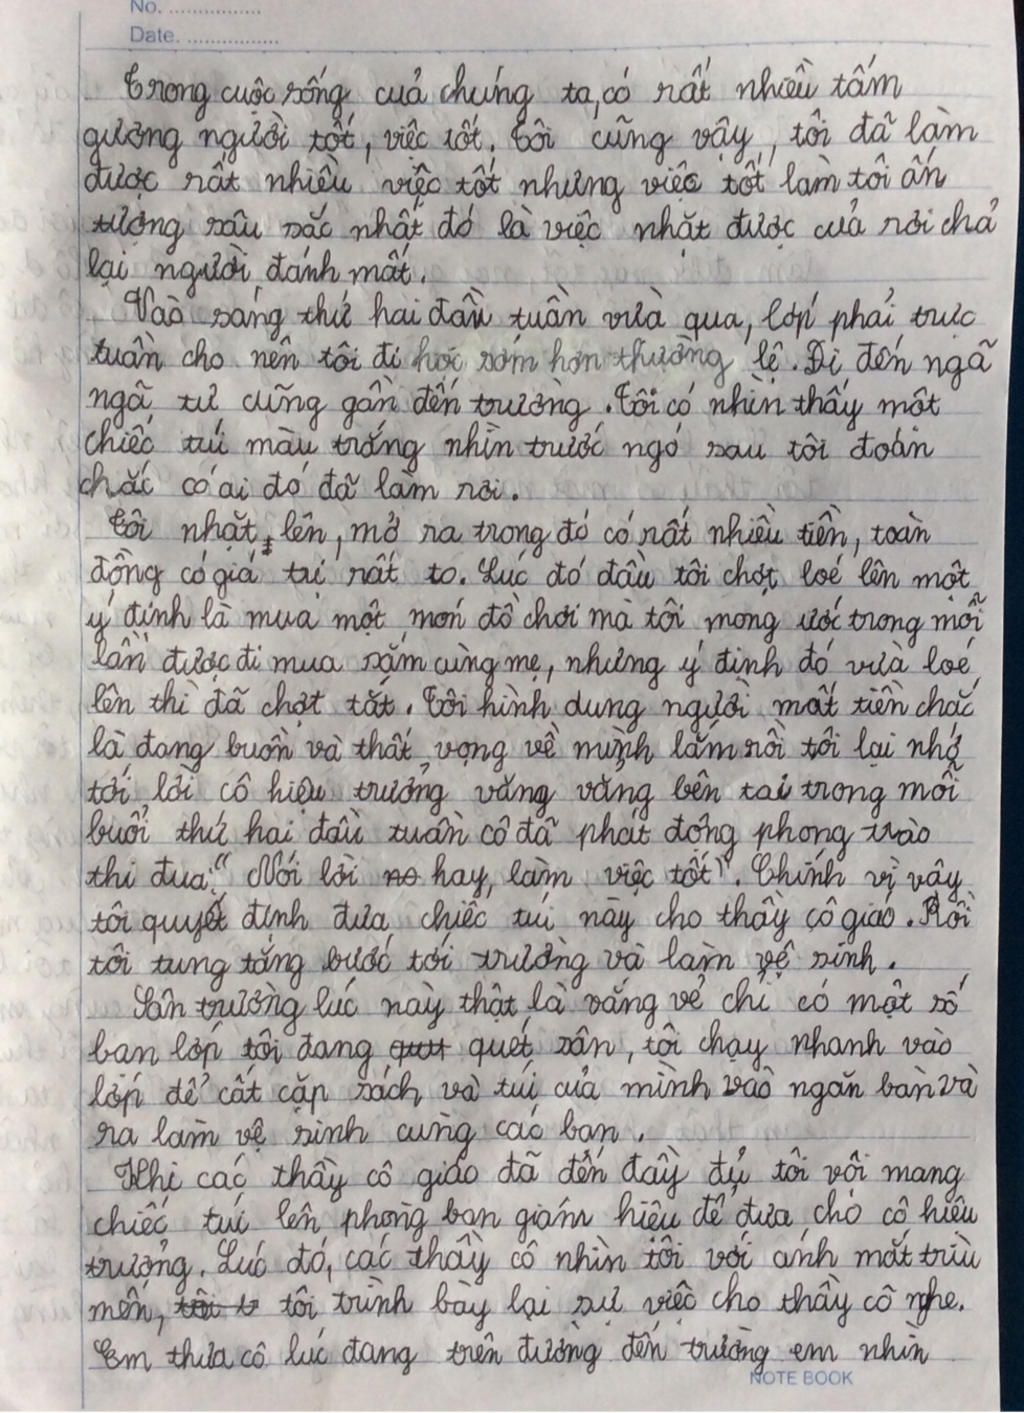 No. ................
Date. ................
Trong cuộc sống cuả chúng ta, có rất nhiều tấm
gương người tốt, việc tốt. Tôi cũng vậy, tôi đã làm
được rất nhiều việc tốt nhưng việc tốt làm tôi ấn
tượng sâu sắc nhất đó là việc nhặt được của rơi chả
lại người đánh mất.
Vào sáng thứ hai đầu tuần vừa qua, lớp phải trực
tuần cho nên tôi đi học sớm hơn thường lệ. Đi đến ngã
ngã tư cũng gần đến trường. Tôi có nhìn thấy một
chiếc túi màu trắng nhìn trước ngó sau tôi đoán
chắc có ai đó đã làm rơi.
Tôi nhặt lên, mở ra trong đó có rất nhiều tiền, toàn
đồng có giá trị rất to. Lúc đó đầu tôi chợt loé lên một
ý định là mua một món đồ chơi mà tôi mong ước trong mỗi
lần được đi mua sắm cùng mẹ, nhưng ý định đó vừa loé
lên thì đã chợt tắt. Tôi hình dung người mất tiền chắc
là đang buồn và thất vọng về mình lắm rồi tôi lại nhớ
tới lời cô hiệu trưởng văng vẳng bên tai trong mỗi
buổi thứ hai đầu tuần cô đã phát động phong trào
thi đua: "Nói lời hay, làm việc tốt". Chính vì vậy
tôi quyết định đưa chiếc túi này cho thầy cô giáo. Rồi
tôi tung tăng bước tới trường và làm vệ sinh.
Sân trường lúc này thật là vắng vẻ chỉ có một số
bạn lớp tôi đang quét sân, tôi chạy nhanh vào
lớp để cất cặp sách và túi của mình vào ngăn bàn và
ra làm vệ sinh cùng các bạn.
Khi các thầy cô giáo đã đến đầy đủ tôi vội mang
chiếc túi lên phòng ban giám hiệu để đưa cho cô hiệu
trưởng. Lúc đó, các thầy cô nhìn tôi với ánh mắt trìu
mến, tôi trình bày lại sự việc cho thầy cô nghe.
Em thưa cô lúc đang trên đường đến trường em nhìn
NOTE BOOK